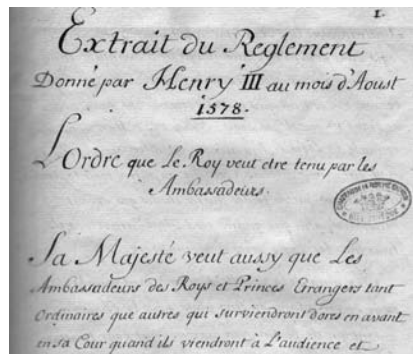 1.
Extrait du Reglement
Donné par Henry III au mois d'Aoust
1578.
L'Ordre que Le Roy veut etre tenu par les
Ambassadeurs.
Sa Majesté veut aussy que Les
Ambassadeurs des Roys et Princes Etrangers tant
Ordinaires que autres qui surviendront dores en avant
en sa Cour quand ils viendront à L'audience et